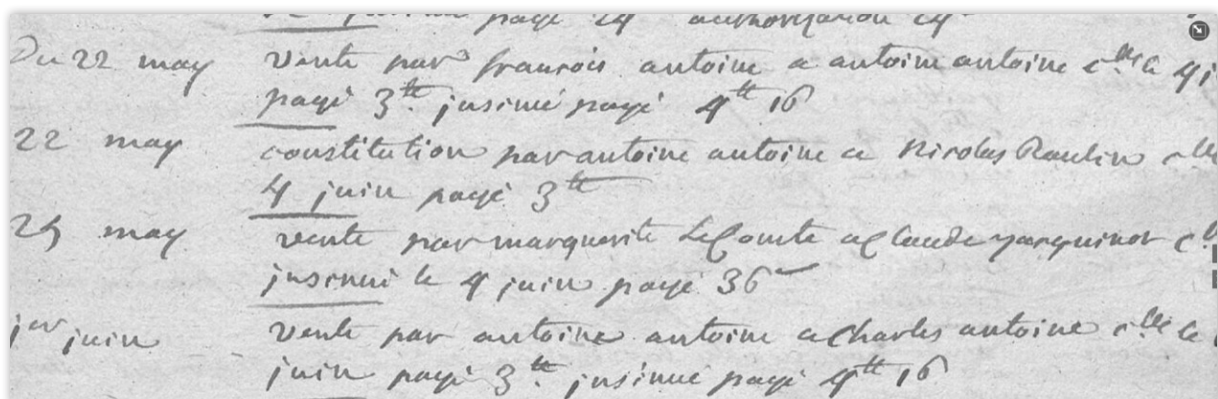 page 24 authorisation 24
Du 22 may vente par françois antoine a antoine antoine c.lle le 4 j
payé 3tt. jnsinué payé 4tt 16
22 may constitution par antoine antoine a Nicolas Raulin c.lle
4 juin payé 3tt
25 may vente par marguerite LeComte a Claude jacquinot c.ll
jnsinué le 4 juin payé 36
1er juin vente par antoine antoine a Charles antoine c.lle le
juin payé 3tt. jnsinué payé 4tt 16